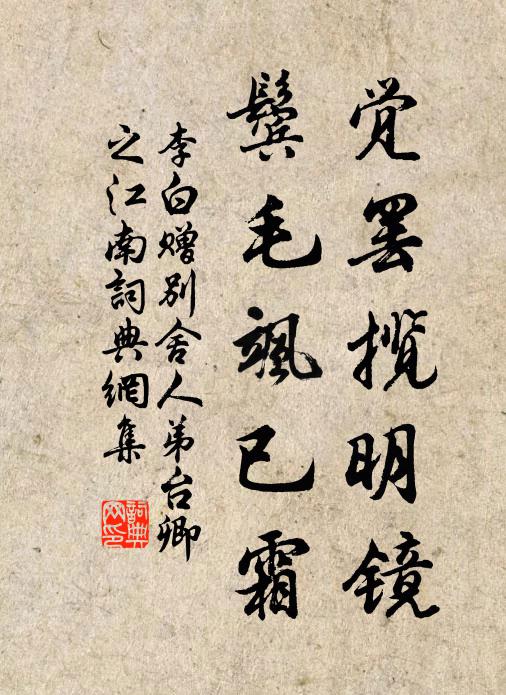 觉罢揽明镜
鬓毛飒已霜
李白赠别舍人弟台卿
之江南詞典網集
詞典
网印